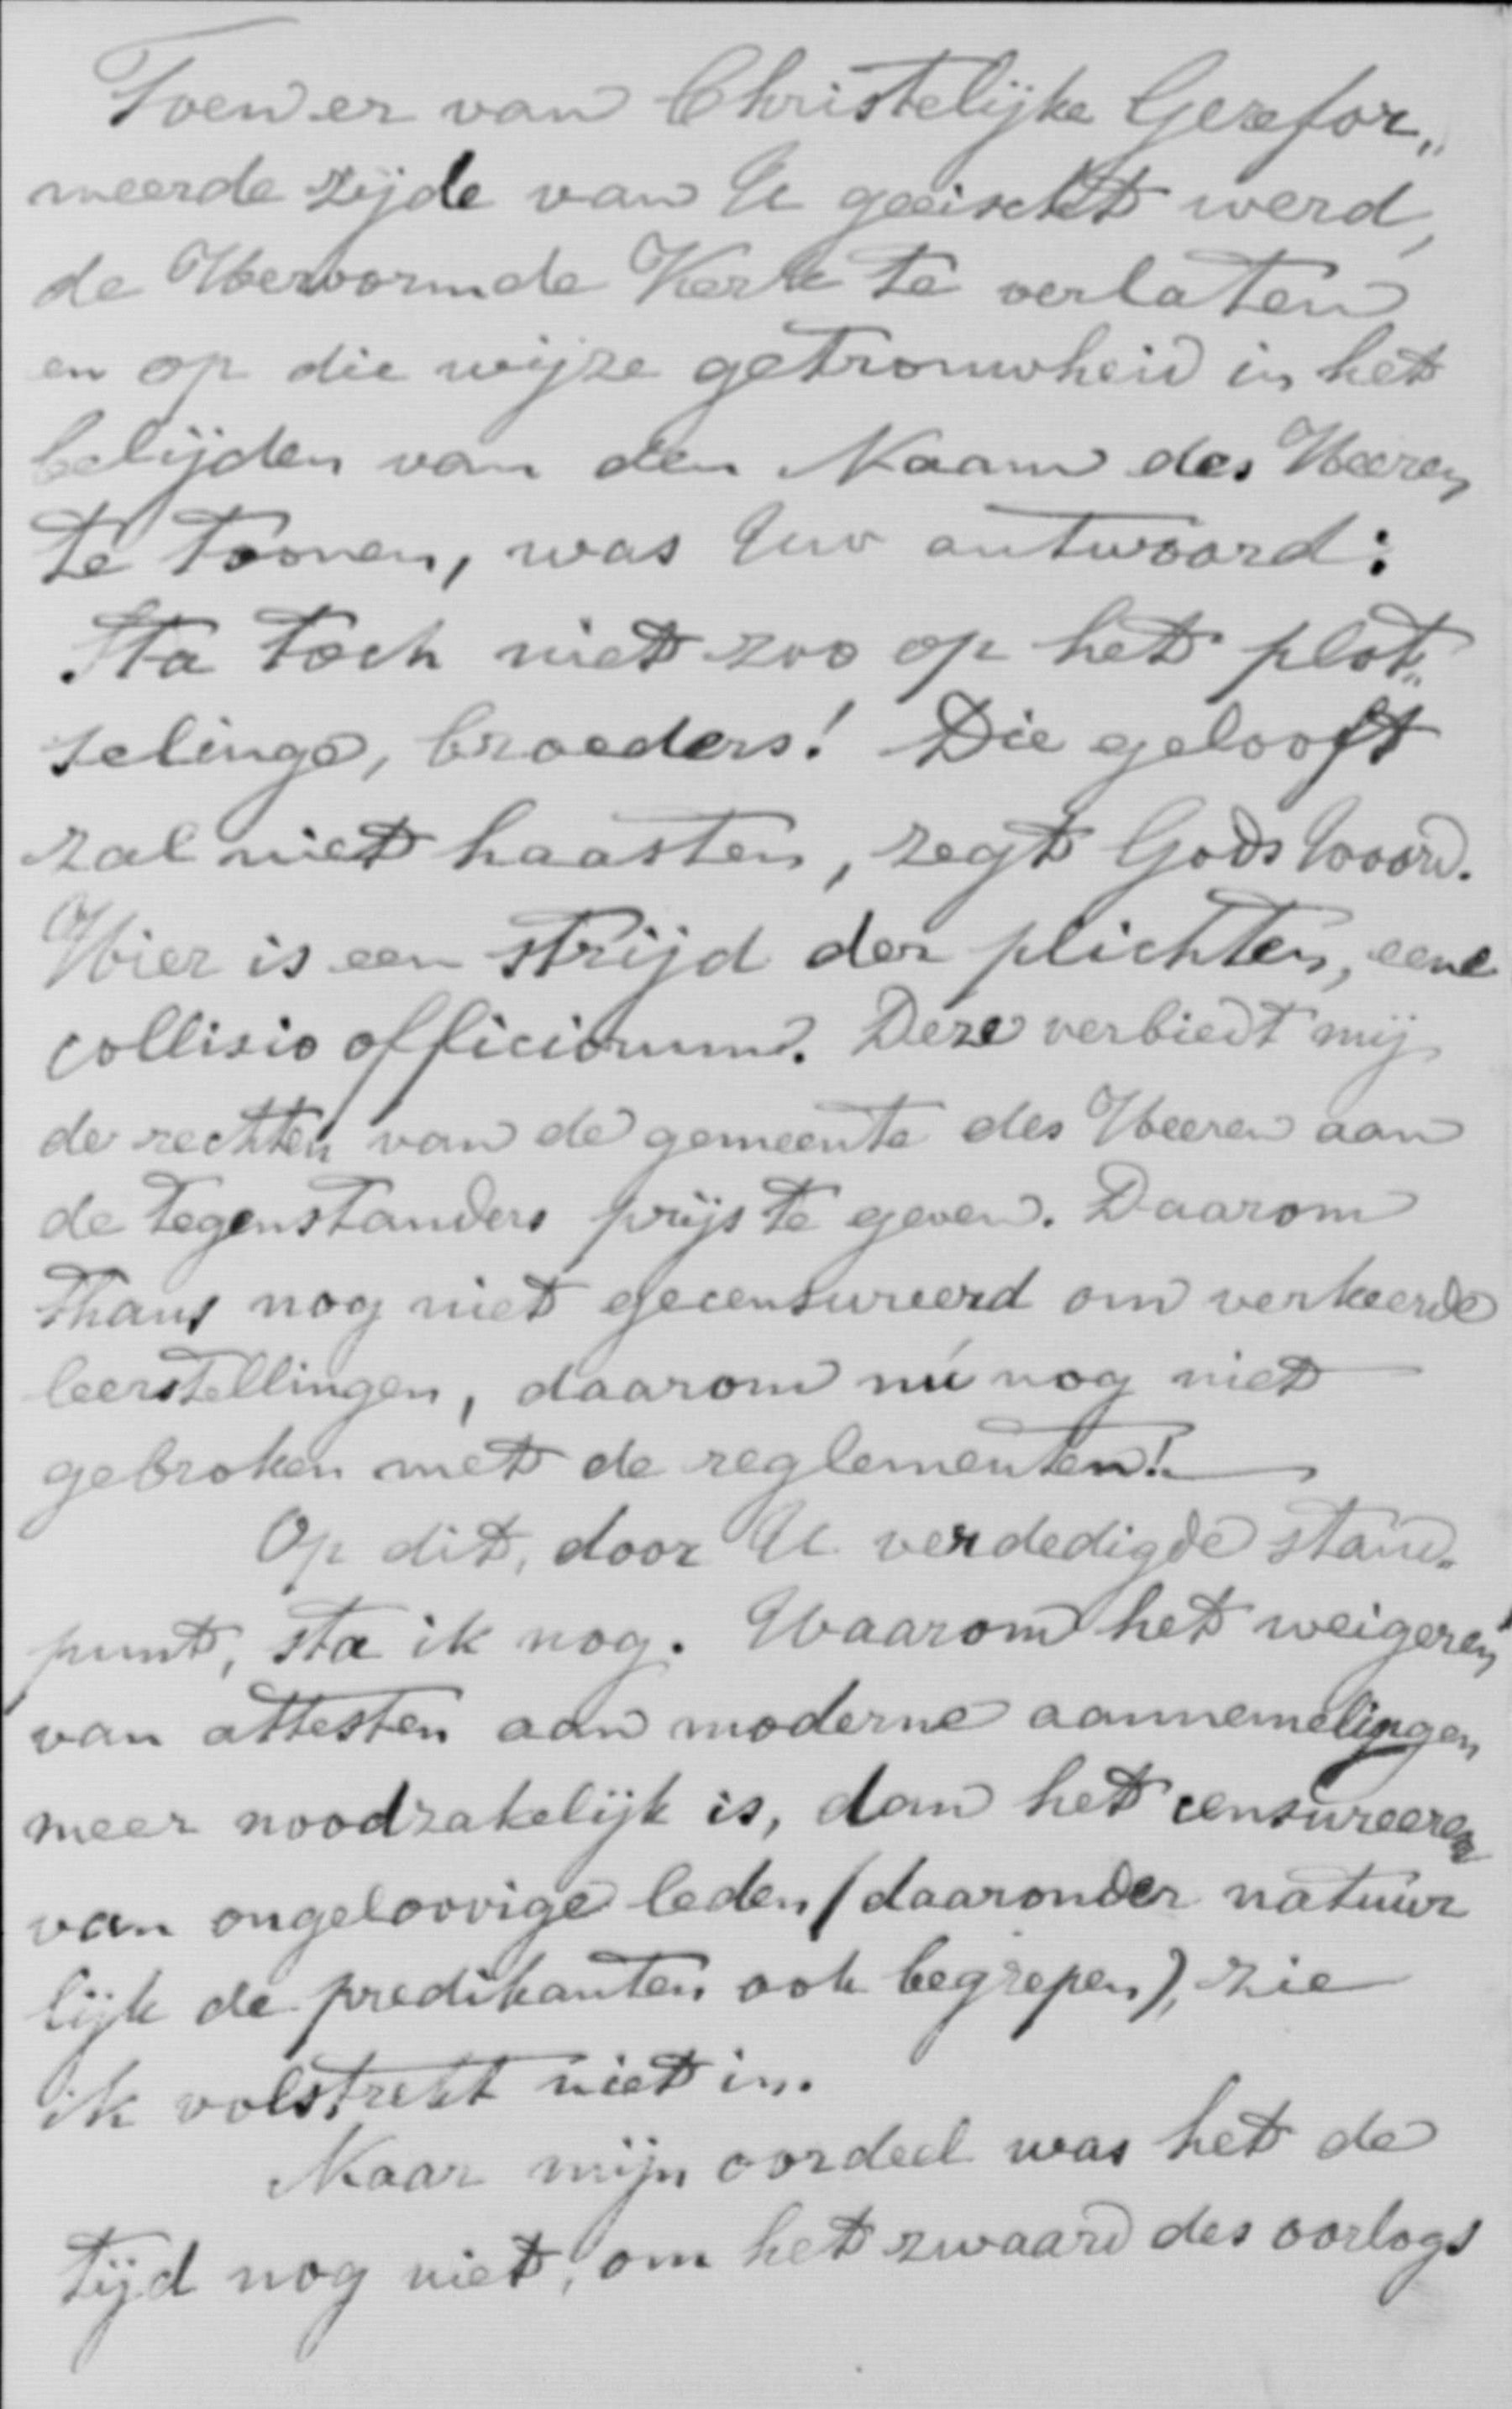 Toen er van Christelijke Gerefor„
meerde zijde van U geëischt werd,
de Hervormde Kerk te verlaten
en op die wijze getrouwheid in het
belijden van den Naam des Heeren
te toonen, was Uw antwoord:
Sta toch niet zoo op het plot„
selinge, broeders! Die gelooft
zal niet haasten, zegt Gods Woord.
Hier is een strijd der plichten, eene
collisio officiorum. Deze verbiedt mij
de rechten van de gemeente des Heeren aan
de tegenstanders prijs te geven. Daarom
thans nog niet gecensureerd om verkeerde
leerstellingen, daarom nú nog niet
gebroken met de reglementen!
Op dit, door U verdedigde stand„
punt, sta ik nog. Waarom het weigeren
van attesten aan moderne aannemelingen
meer noodzakelijk is, dan het censureeren
van ongeloovige leden (daaronder natuur
lijk de predikanten ook begrepen), zie
ik volstrekt niet in.
Naar mijn oordeel was het de
tijd nog niet, om het zwaard des oorlogs